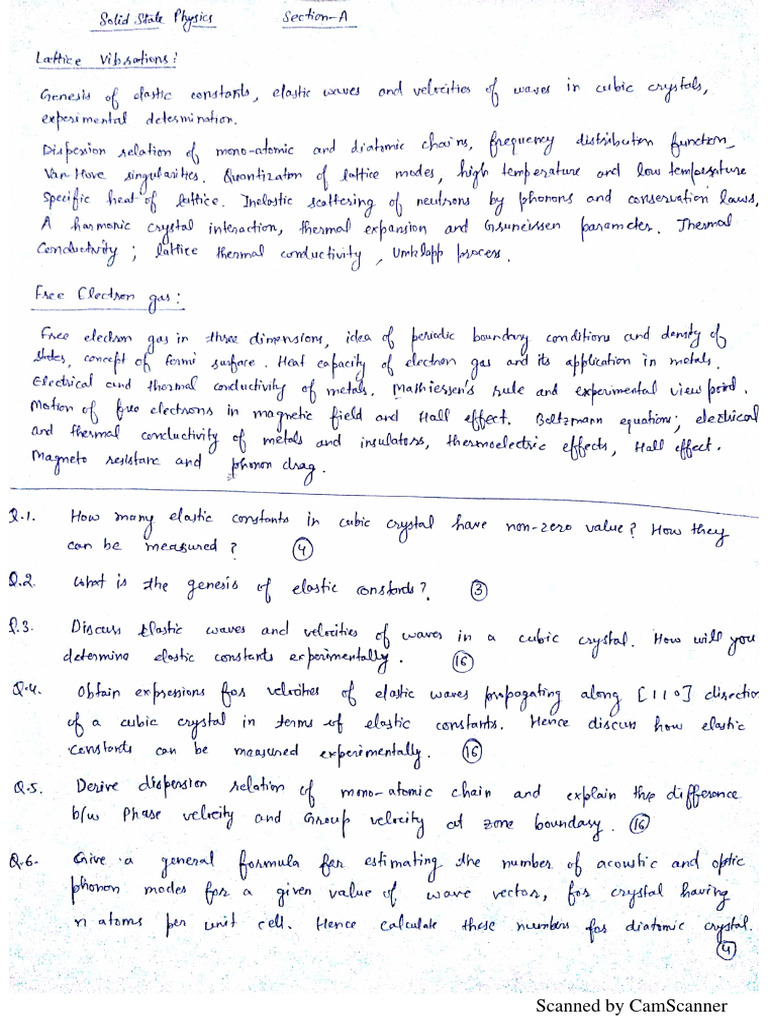 Solid State Physics Section-A
Lattice Vibrations:
Genesis of elastic constants, elastic waves and velocities of waves in cubic crystals,
experimental determination.
Dispersion relation of mono-atomic and diatomic chains, frequency distribution function_
Van-Hove singularities. Quantization of lattice modes, high temperature and low temperature
Specific heat of lattice. Inelastic scattering of neutrons by phonons and conservation laws,
A harmonic crystal interaction, thermal expansion and Gruneissen parameter. Thermal
Conductivity ; lattice thermal conductivity, Umklapp process.
Free Electron gas:
Free electron gas in three dimensions, idea of periodic boundary conditions and density of
states, concept of fermi surface. Heat capacity of electron gas and its application in metals.
Electrical and thermal conductivity of metals. Mathiessen's rule and experimental view point.
Motion of free electrons in magnetic field and Hall effect. Boltzmann equations; electrical
and thermal conductivity of metals and insulators, thermoelectric effects, Hall effect.
Magneto resistance and phonon drag.
Q.1. How many elastic constants in cubic crystal have non-zero value? How they
can be measured? (4)
Q.2. What is the genesis of elastic constants?. (3)
Q.3. Discuss Elastic waves and velocities of waves in a cubic crystal. How will you
determine elastic constants experimentally. (16)
Q.4. Obtain expressions for velocities of elastic waves propogating along [110] direction
of a cubic crystal in terms of elastic constants. Hence discuss how elastic
constants can be measured experimentally. (16)
Q.5. Derive dispersion relation of mono-atomic chain and explain the difference
b/w Phase velocity and Group velocity at zone boundary. (16)
Q.6. Give a general formula for estimating the number of acoustic and optic
phonon modes for a given value of wave vector, for crystal having
n atoms per unit cell. Hence calculate these numbers for diatomic crystal.
(4)
Scanned by CamScanner